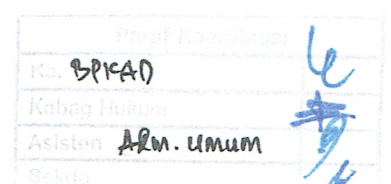 Paraf Koordinasi
Ka. BPKAD
Kabag Hukum
Asisten ADM. UMUM
Sekda